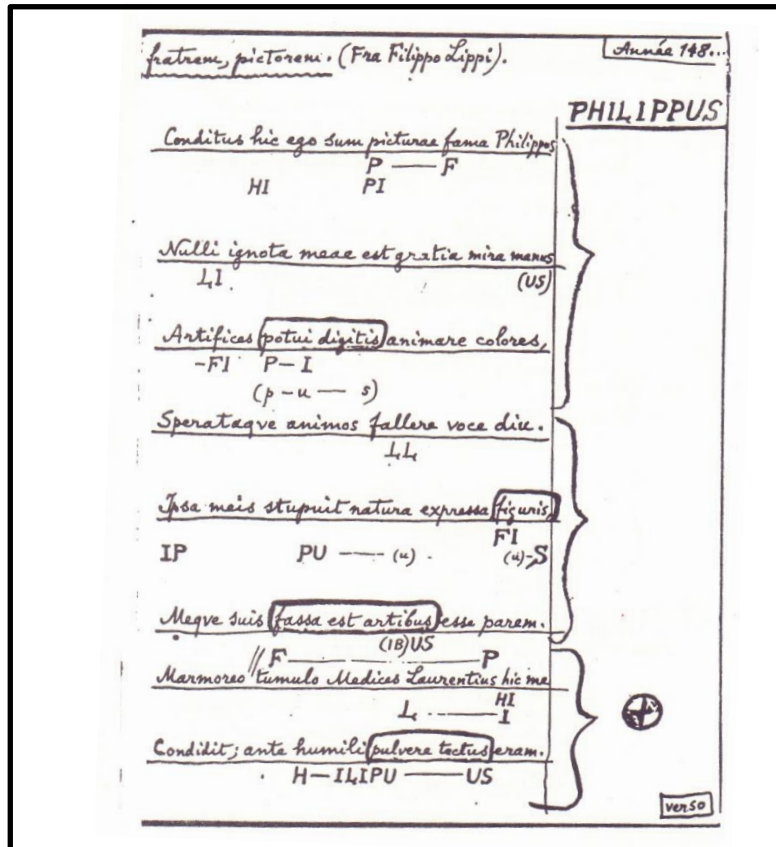 fratrem, pictorem. (Fra Filippo Lippi).
Année 148...
PHILIPPUS
Conditus hic ego sum picturae fama Philippos
P — F
HI PI
Nulli ignota meae est gratia mira manus
LI (US)
Artifices potui digitis animare colores,
-FI P-I
(p-u — s)
Sperataqve animos fallere voce diu.
LL
Ipsa meis stupuit natura expressa figuris,
FI
IP PU — (u) (u)-S
Meqve suis fassa est artibus esse parem.
(IB)US
// F — P
Marmoreo tumulo Medices Laurentius hic me
HI
L — I
Condidit; ante humili pulvere tectus eram.
H-ILIPU — US
verso